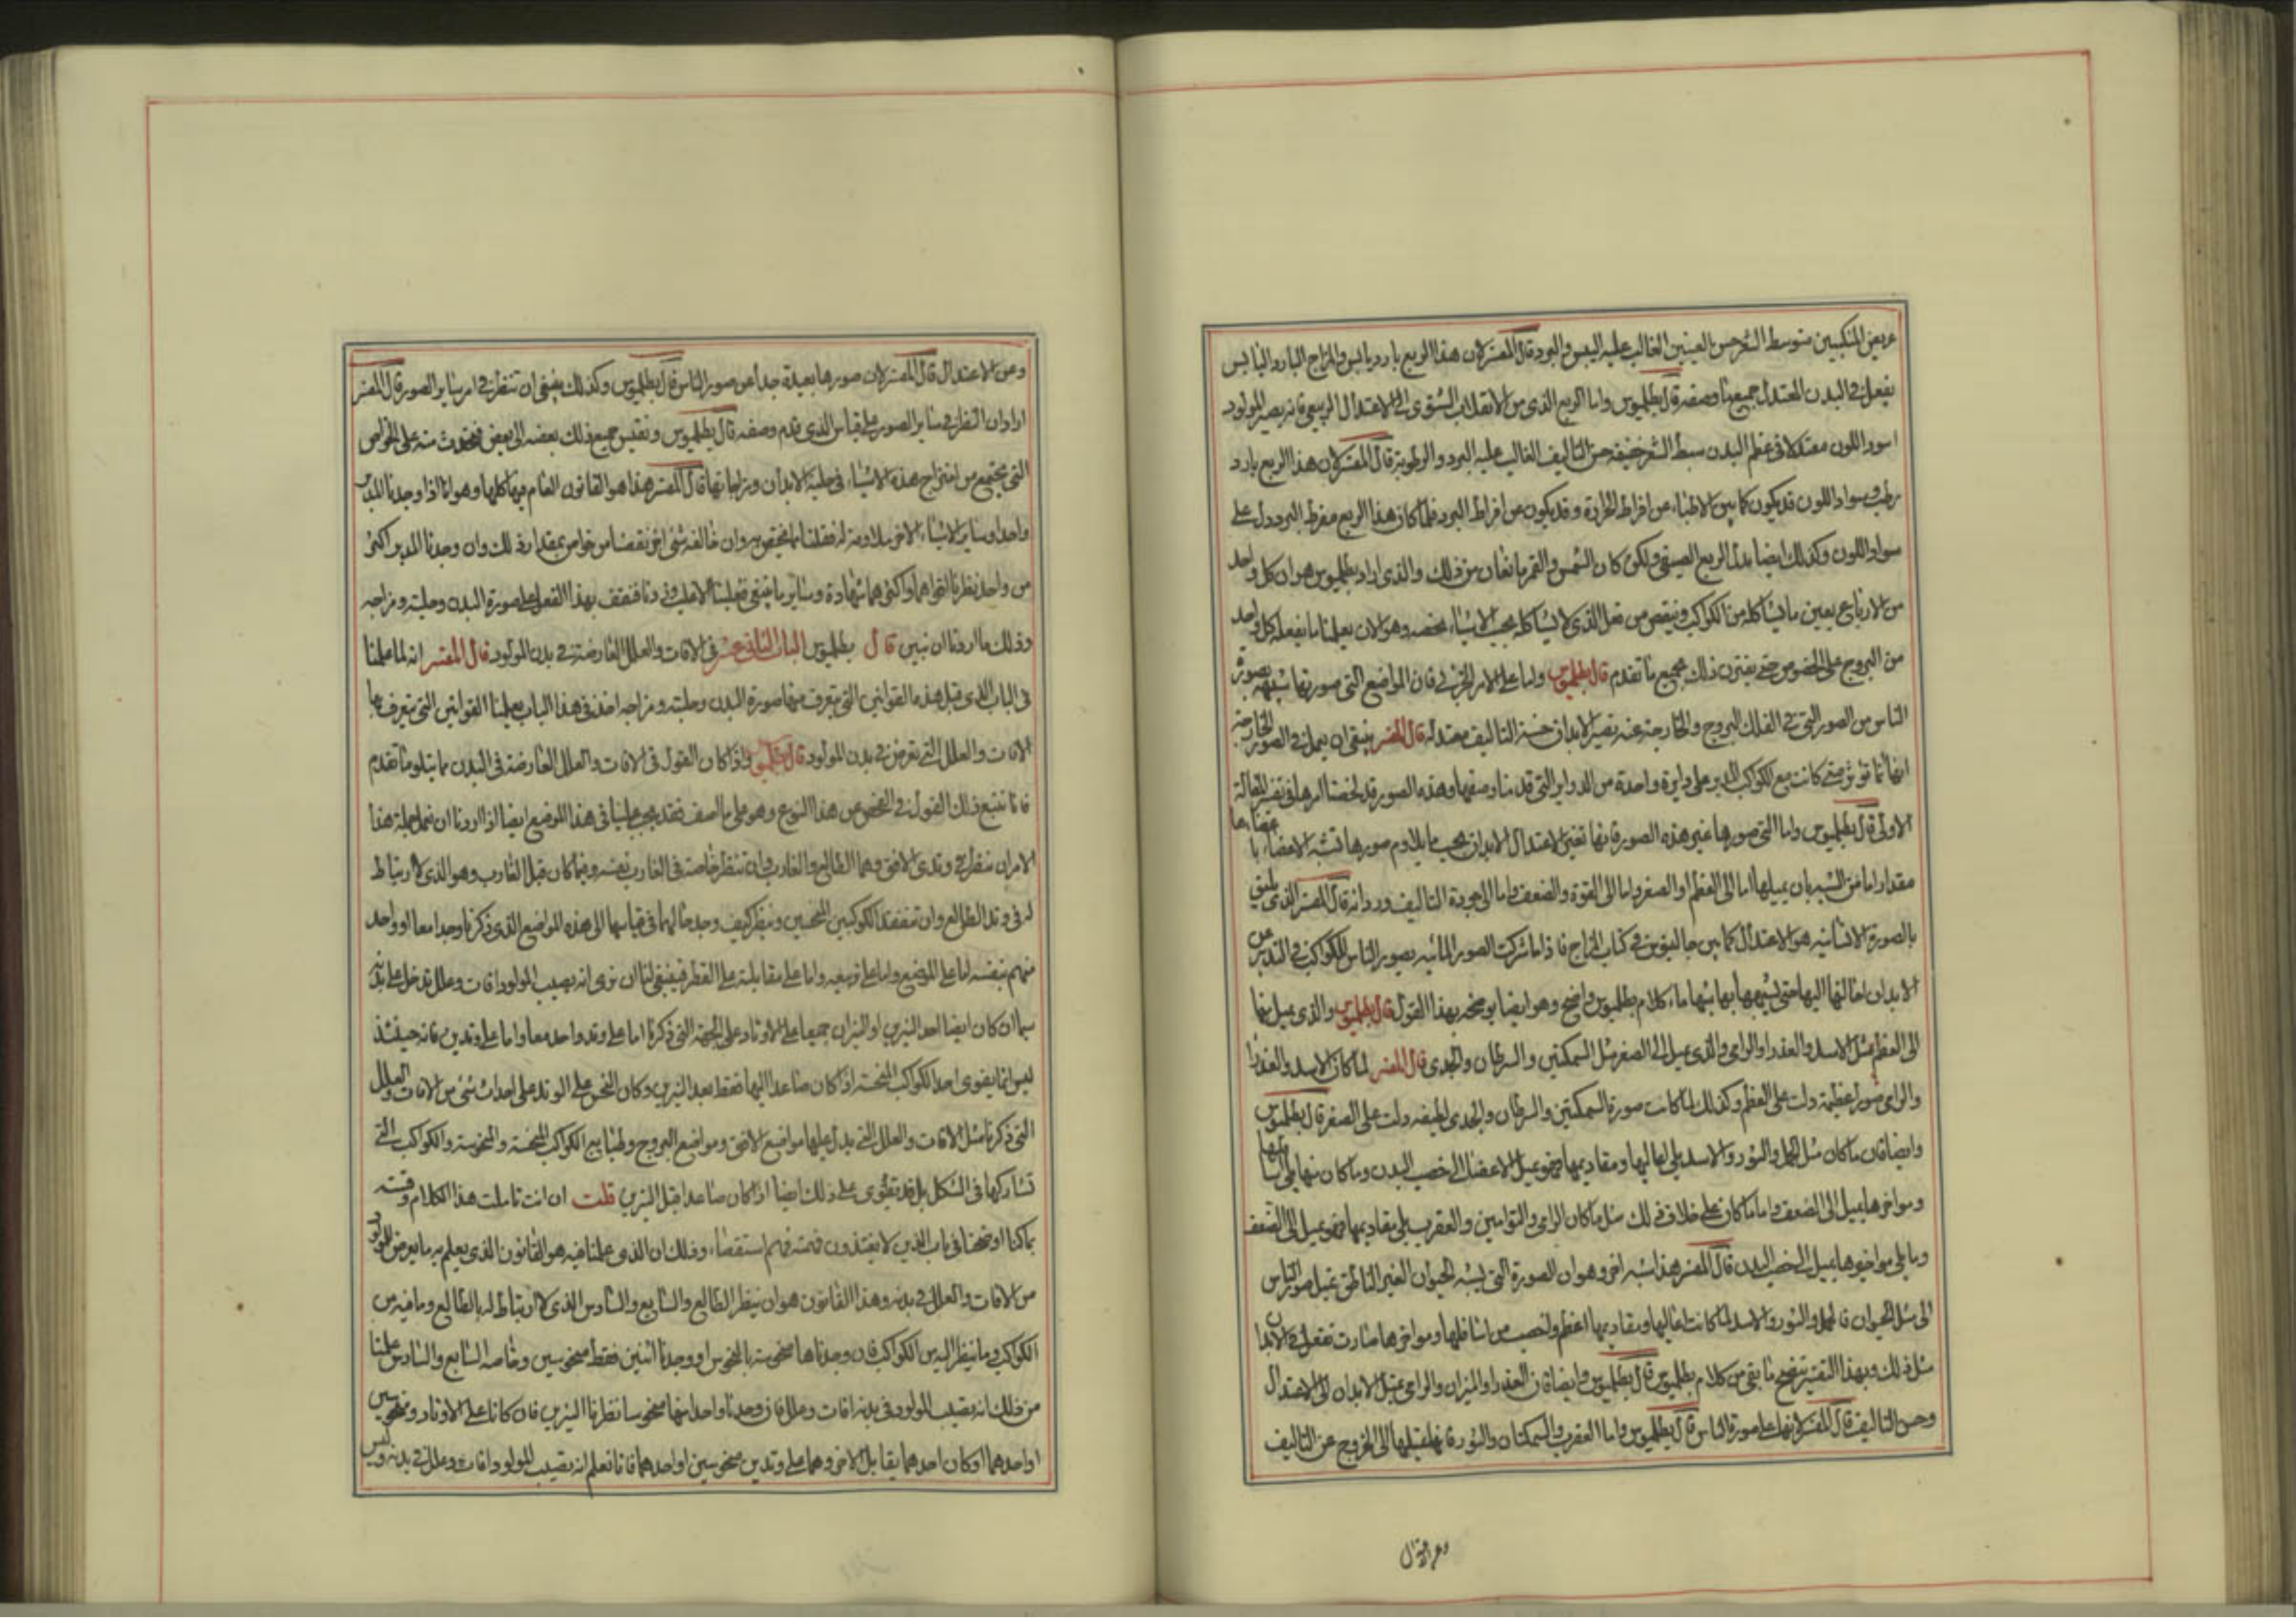 عريض المنكبين متوسط الشعر حسن العينين الغالب عليه اليبس والبرد قال المفسر لان هذا الربع بارد يابس والمزاج البارد اليابس
يفعل في البدن المعتدل جميع ما وصفه قال بطلميوس واما الربع الذي من الانقلاب الشتوي الى الاعتدال الربيعي فانه يصير المولود
اسود اللون معتدلا في عظم البدن سبط الشعر خفيفه حسن التاليف الغالب عليه البرد والرطوبة قال المفسر لان هذا الربع بارد
رطب وسواد اللون قد يكون كما بين الاطباء من افراط الحرارة وقد يكون من افراط البرد فلما كان هذا الربع مفرط البرد دل على
سواد اللون وكذلك ايضا يدل الربع الصيفي ولكن كان الشمس والقمر مانعان من ذلك والذي اراد بطلميوس هو ان كل واحد
من الارباع يعين ما يشاكله من الكواكب وينقص من فعل الذي لا يشاكله بحسب الاشياء وهو الان يعلمنا ما يفعله كل واحد
من البروج على الخصوص حتى يقترن ذلك بجميع ما تقدم قال بطلميوس واما على الامر الجزئي فان المواضع التي صورتها شبيهة بصورة
الناس من الصور التي في الفلك البروج والخارجة عنه تصير الابدان حسنة التاليف معتدلة قال المفسر ينبغي ان يعمل في الصور الخارجة
انها انما تؤثر متى كانت مع الكواكب المدبر على دايرة واحدة من الدواير التي قدمنا وصفها وهذه الصور قد لخصنا امرها في تفسير المقالة
الاولى قال بطلميوس واما التي صورها غير هذه الصور فانها تغير الاعتدال الابدان بحسب ما يلاوم صورها فتشبه الاعضاء باعضائها
مقدارا ما من الشبه بان يميلها اما الى العظم او الصغر واما الى القوة والضعف واما الى جودة التاليف ورداته قال المفسر الذي يليق
بالصورة الانسانيه هو الاعتدال كما بين جالينوس في كتاب المزاج فاذا ما شركت الصور المائيه بصور الناس للكواكب في التدبير عن
الابدان احالتها اليها حتى يشبهها بها شبها ما كلام بطلميوس واضح وهو ايضا يوضحه بهذا القول قال بطلميوس والذي يميل منها
الى العظم مثل الاسد والعذرا والرامي والذي يميل الى الصغر مثل السمكتين والسرطان والجدي قال المفسر لما كان الاسد والعذرا
والرامي صورا عظيمة دلت على العظم وكذلك لما كانت صورة السمكتين والسرطان والجدي لطيفه دلت على الصغر قال بطلميوس
وايضا فان ما كان مثل الحمل والثور والاسد يلي اعاليها ومقاديمها فهو يميل الاعضا الى خصب البدن وما كان منها يلي اسافلها
ومواخرها يميل الى الضعف واما ما كان على خلاف ذلك مثل ما كان الرامي والتوامين والعقرب يلي مقاديمها فهو يميل الى الضعف
وما يلي مواخرها يميل الى خصب البدن قال المفسر هذا شبه اخر وهو ان الصورة التي تشبه الحيوان الغير الناطق تميل صور الناس
الى مثل الحيوان فالحمل والثور والاسد لما كانت اعاليها ومقاديمها اعظم واخصب من اسافلها ومواخرها صارت تفعل في الابدان
مثل ذلك وبهذا التفسير يتضح ما بقي من كلام بطلميوس قال بطلميوس وايضا فان العذرا والميزان والرامي تميل الابدان الى الاعتدال
وحسن التاليف قال المفسر لانها على صورة الناس قال بطلميوس واما العقرب والسمكتان والثور فانها تميلها الى الخروج عن التاليف
وعن الاعتدال
وعن الاعتدال قال المفسر لان صورها بعيدة جدا من صور الناس قال بطلميوس وكذلك ينبغي ان تنظر في امر سائر الصور قال المفسر
اراد ان النظر في سائر الصور على قياس الذي قدم وصفه قال بطلميوس ونقيس جميع ذلك بعضه الى بعض فتحدث منه على الخواص
التي تجتمع من امتزاج هذه الاشياء في حلية الابدان ومزاجاتها قال المفسر هذا هو القانون العام فيها كلها وهو انا اذا وجدنا المدبر
واحدا وسائر الاشياء الاخر ملاومة له فعلنا بما يختص به وان خالفه شي اخر نقصنا من خواص بمقدار ذلك وان وجدنا المدبر اكثر
من واحد نظرنا اقواهما واكثرهما شهادة وسائر ما ينبغي فعلنا الاغلب فنقف بهذا الفعل على صورة البدن وحليته ومزاجه
وذلك ما اردنا ان نبين قال بطلميوس الباب الثاني عشر في الافات والعلل العارضة في بدن المولود قال المفسر انه لما علمنا
في الباب الذي قبل هذه القوانين التي يتعرف منها صورة البدن وحليته ومزاجه اخذ في هذا الباب يعلمنا القوانين التي يتعرف بها
الافات والعلل التي تعرض في بدن المولود قال بطلميوس واذا كان القول في الافات والعلل العارضة في البدن مما يتلو ما تقدم
فانا نتبع ذلك القول في الفحص عن هذا النوع وهو على ما اصف فقد يجب علينا في هذا الموضع ايضا اذا اردنا ان نعلم جملة هذا
الامر ان ننظر في وتدي الافق وهما الطالع والغارب وان ننظر خاصة في الغارب نفسه وفيما كان قبل الغارب وهو الذي لا ارتباط
له في وتد الطالع وان نتفقد الكوكبين النحسين وننظر كيف وجد حالهما في قياسهما الى هذه المواضع الذي ذكرنا وجدا معا او واحد
منهم بنفسه اما على الموضع واما على تربيعه واما على مقابلته على القطر فينبغي لنا ان نرى انه يصيب المولود افات وعلل تدخل على بدنه
سيما ان كان ايضا احد النيرين او النيران جميعا على الاوتاد على الجهة التي ذكرنا اما على وتد واحد معا واما على وتدين فانه حينئذ
ليس انما يقوى احد الكواكب النحسة اذا كان صاعدا اليهما فقط بعد النيرين وكان النحس على الوتد على احداث شي من الافات والعلل
التي ذكرنا مثل الافات والعلل التي يدل عليها مواضع الافق ومواضع البروج وطبايع الكواكب النحسة والمنحوسة والكواكب التي
تشاركها في الشكل بل قد تقوى على ذلك ايضا اذا كان صاعدا قبل النيرين قلت ان انت تاملت هذا الكلام وقسته
بما كنا اوضحنا في باب الذين لا يغتذون فهمته فهم استقصاء وذلك ان الذي علمنا فيه هو القانون الذي يعلم به ما يعرض للمولود
من الافات والعلل في بدنه وهذا القانون هو ان ينظر الطالع والسابع والسادس الذي لا ارتباط له بالطالع وما فيه من
الكواكب وما ينظر اليه من الكواكب فان وجدناها منحوسة بالنحوس او وجدنا اثنين فقط منحوسين وخاصة السابع والسادس علمنا
من ذلك انه يصيب المولود في بدنه افات وعلل فان وجدنا واحدا منها منحوسا نظرنا النيرين فان كانا على الاوتاد ومنحوسين
او احدهما او كان احدهما يقابل الاخر وهما على وتدين منحوسين او احدهما فانا نعلم انه يصيب المولود افات وعلل في بدنه وليس